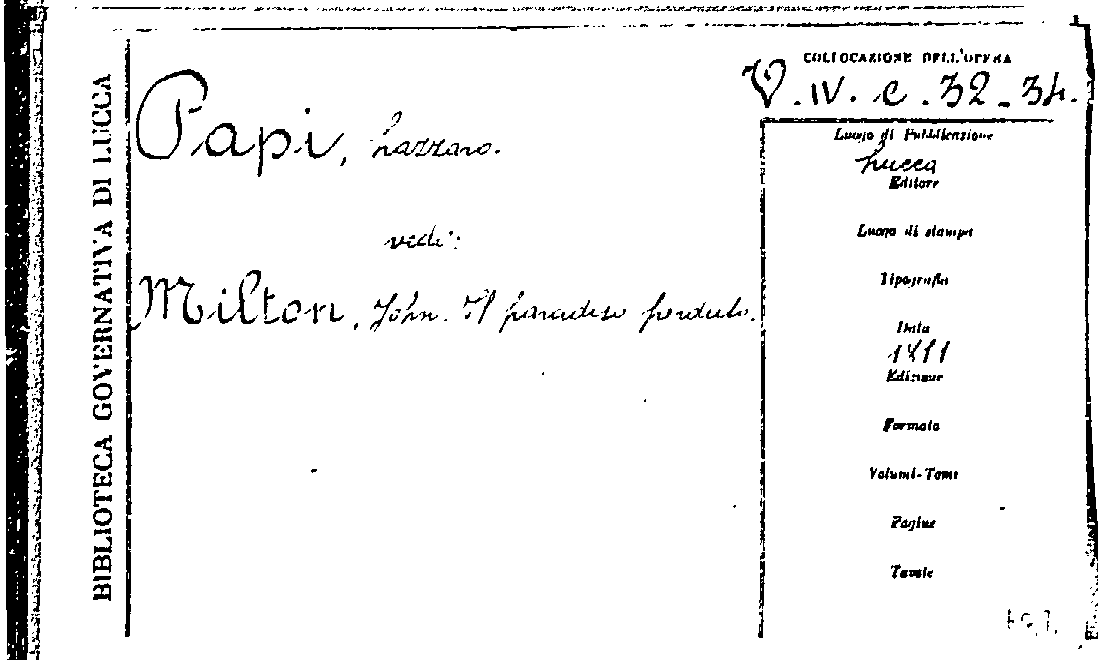 BIBLIOTECA GOVERNATIVA DI LUCCA
COLLOCAZIONE DELL'OPERA
V. IV. c. 32-34.
Papi, Lazzaro.
vedi:
Milton, John. Il paradiso perduto.
Luogo di Pubblicazione
Lucca
Editore
Luogo di stampa
Tipografia
Data
1811
Edizione
Formato
Volumi-Tomi
Pagine
Tavole